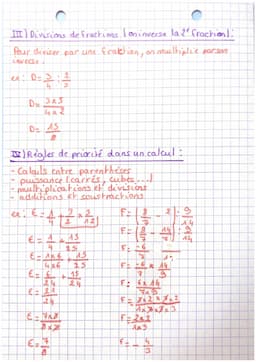 III) Divisions de fractions (on inverse la 2e fraction) :
Pour diviser par une fraction, on multiplie par son
inverse.
ex : D = 3/4 :
D = 3x5/4x2
D = 15/8
IV) Règles de priorité dans un calcul :
- Calculs entre parenthèses
- puissance (carrés, cubes ...)
- multiplications et divisions
- additions et soustractions
ex : E = 1/4 +
E = 1/4 +
E = 1x6/4x6 +
E = 6/24 + 15/24
E = 21/24
E = 7x3/8x3
E = 7/8
F = (8/7 - 2) : 9/14
F = (8/7 - 14/7) : 9/14
F = -6/7 :
F = -6/7 x 14/9
F = 6x14/7x9
F = 2x2/1x3
F = - 4/3